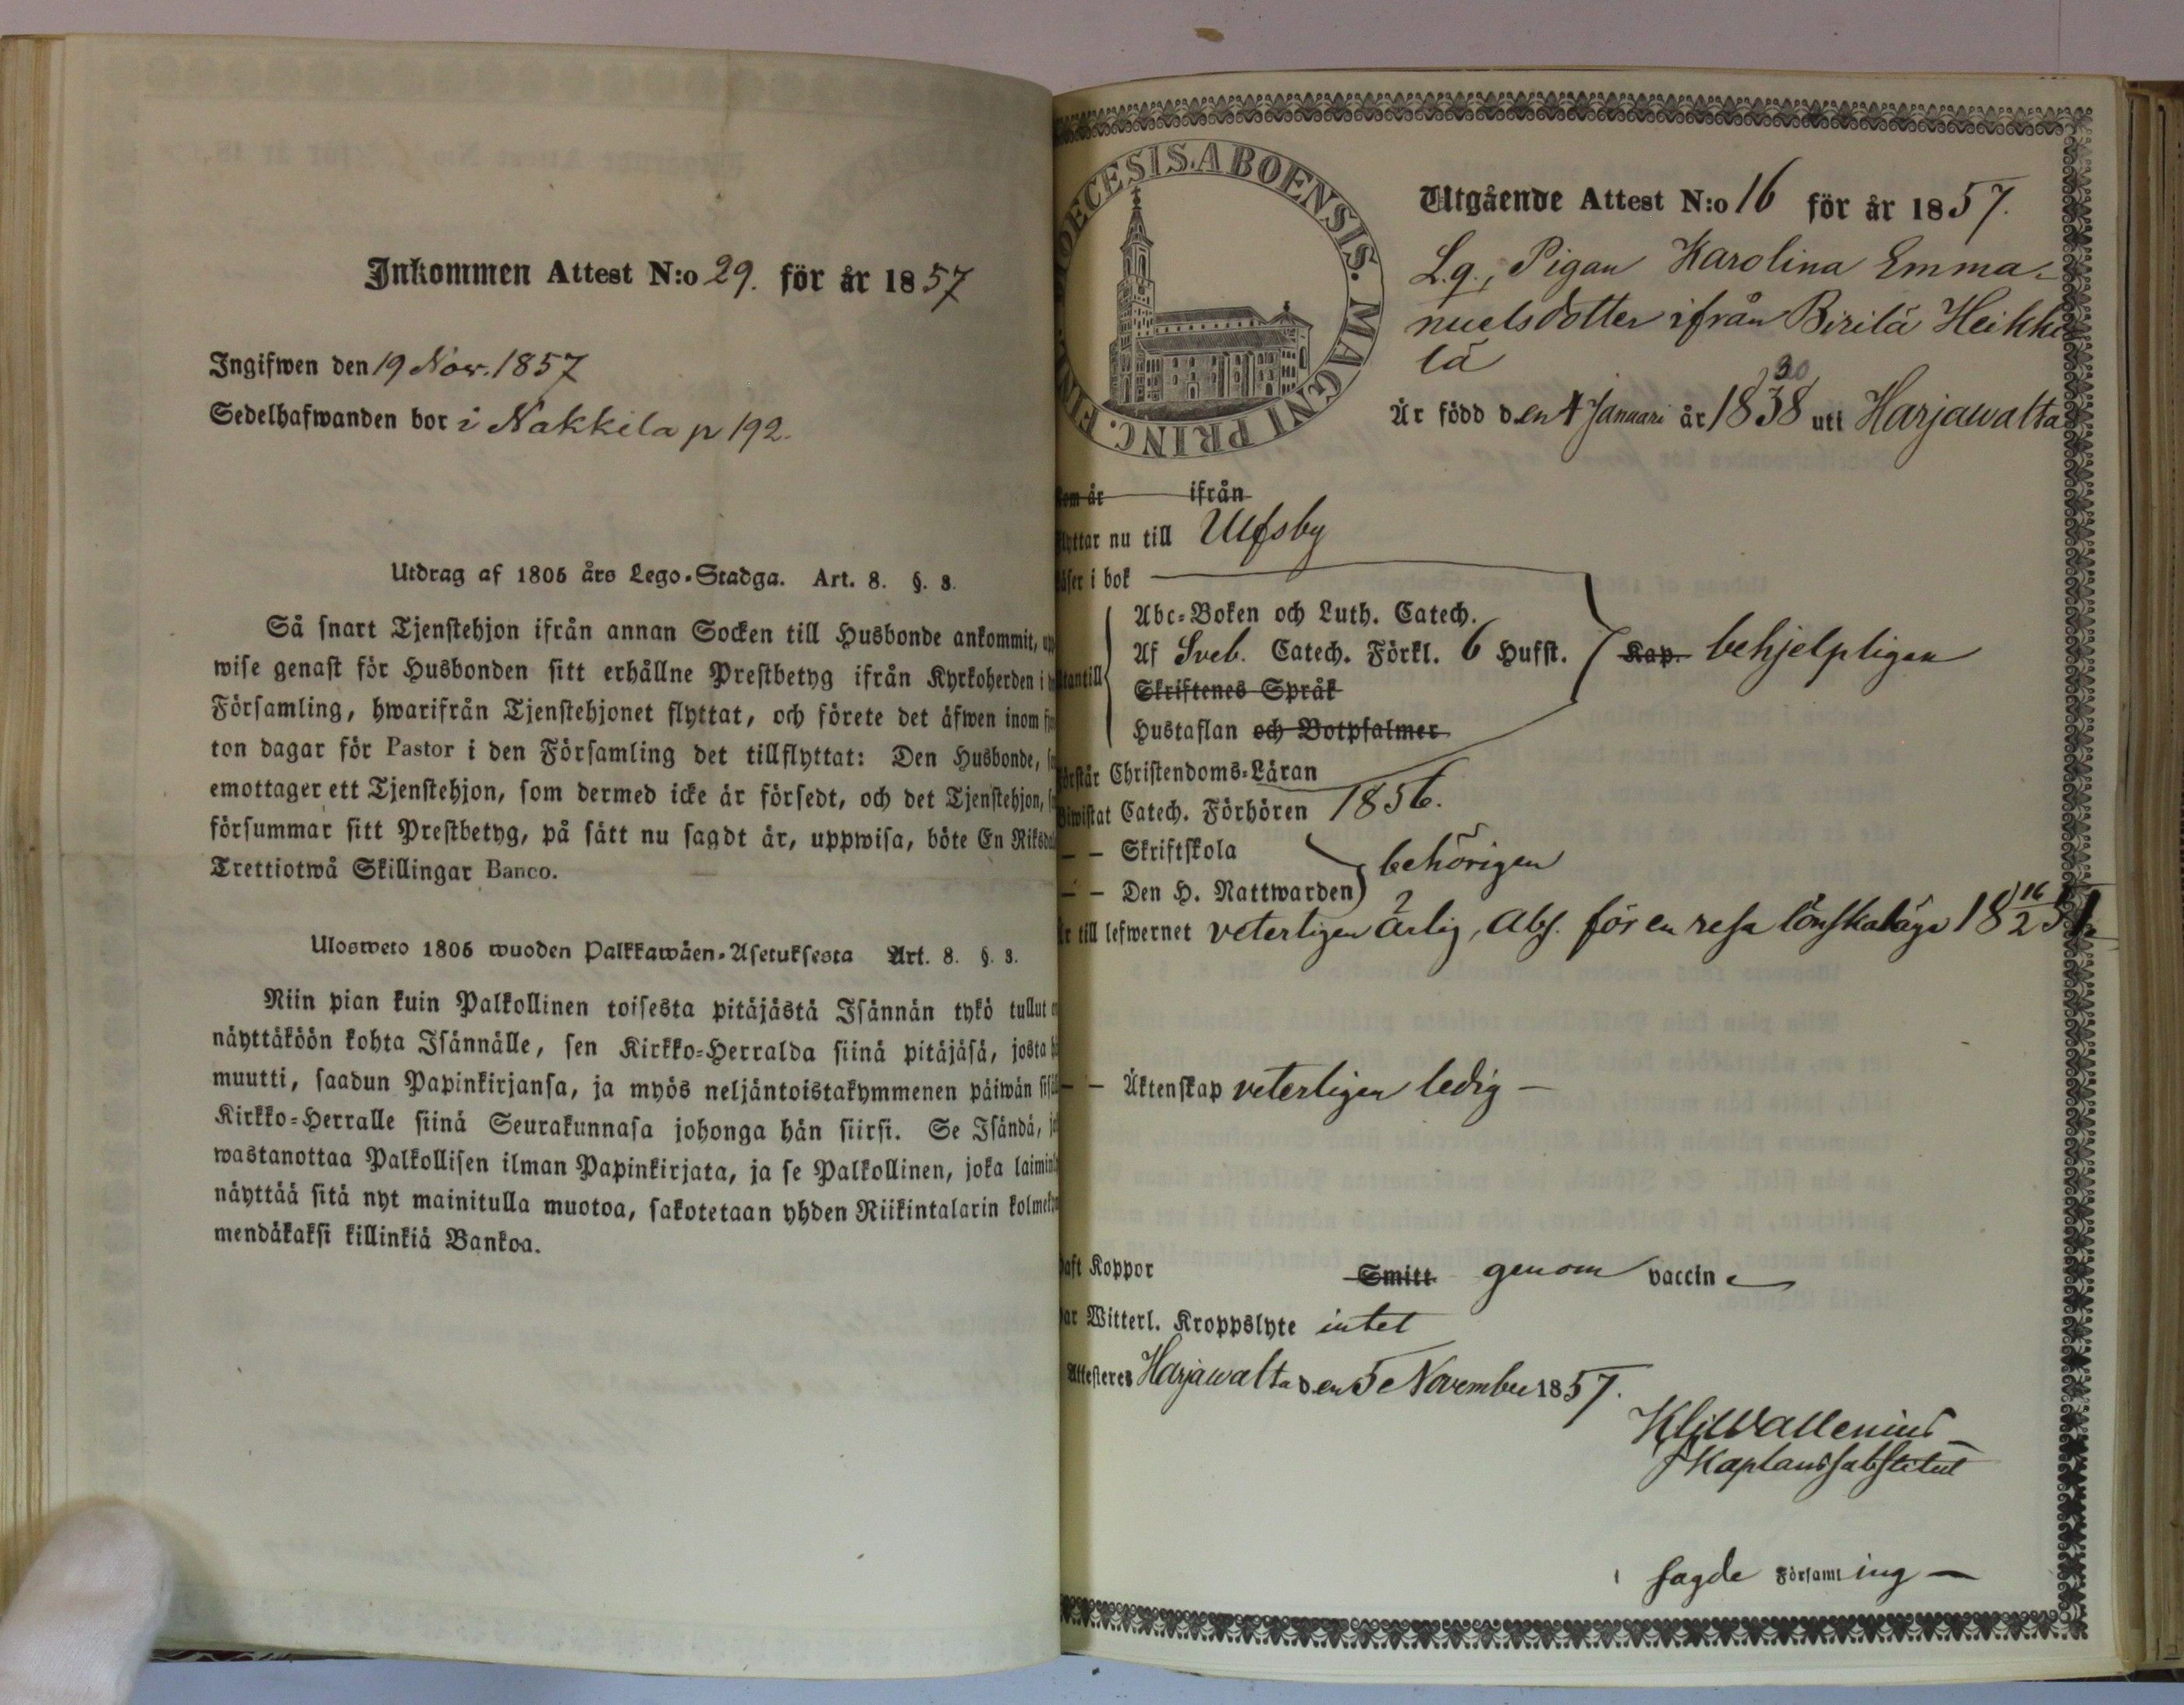 Inkommen Attest N:o 29. för år 1857
Ingifwen den 19 Nov. 1857
Sedelhafwanden bor i Nakkila p 192.
Utdrag af 1805 års Lego-Stadga. Art. 8. §. 8.
Så snart Tjenstehjon ifrån annan Socken till Husbonde ankommit,
wise genast för Husbonden sitt erhållne Prestbetyg ifrån Kyrkoherden i
Församling, hwarifrån Tjenstehjonet flyttat, och förete det äfwen inom
ton dagar för Pastor i den Församling det tillflyttat: Den Husbonde,
emottager ett Tjenstehjon, som dermed icke är försedt, och det Tjenstehjon,
försummar sitt Prestbetyg, på sätt nu sagdt är, uppwisa, böte En
Trettiotwå Skillingar Banco.
Ulosweto 1805 wuoden Palkkawäen-Asetuksesta Art. 8. §. 8.
Niin pian kuin Palkollinen toisesta pitäjästä Isännän tykö tullut
näyttäköön kohta Isännälle, sen Kirkko-Herralda siinä pitäjäsä, josta
muutti, saadun Papinkirjansa, ja myös neljäntoistakymmenen päiwän
Kirkko-Herralle siinä Seurakunnasa johonga hän siirsi. Se Isändä,
wastanottaa Palkollisen ilman Papinkirjata, ja se Palkollinen, joka
näyttää sitä nyt mainitulla muotoa, sakotetaan yhden Riikintalarin
mendäkaksi killinkiä Bankoa.
DIOECESIS. ABOENSIS. MAGNI PRINC.
Utgående Attest N:o 16 för år 1857.
L.g., Pigan Karolina Emma-
nuelsdotter ifrån Birilä Heikki
lä
Är född den 4 Januari år 1838 uti Harjawalta
30
är ifrån
nu till Ulfsby
i bok
Abc-Boken och Luth. Catech.
Af Sveb. Catech. Förkl. 6 Hufst. Kap. behjelpligen
Skriftenes Språk
Hustaflan och Botpsalmer
Christendoms-Läran
Catech. Förhören 1856.
— Skriftskola
behörigen
— Den H. Nattwarden
till lefwernet veterligen ärlig, Abs. för en resa lönskaläge 18 16/2 57
— Äktenskap veterligen ledig —
Koppor Smitt genom vaccine
Witterl. Kroppslyte intet
Attesteres Harjawalta den 5 November 1857.
Wallenius
Kaplanssubstitut
i sagde Församling —